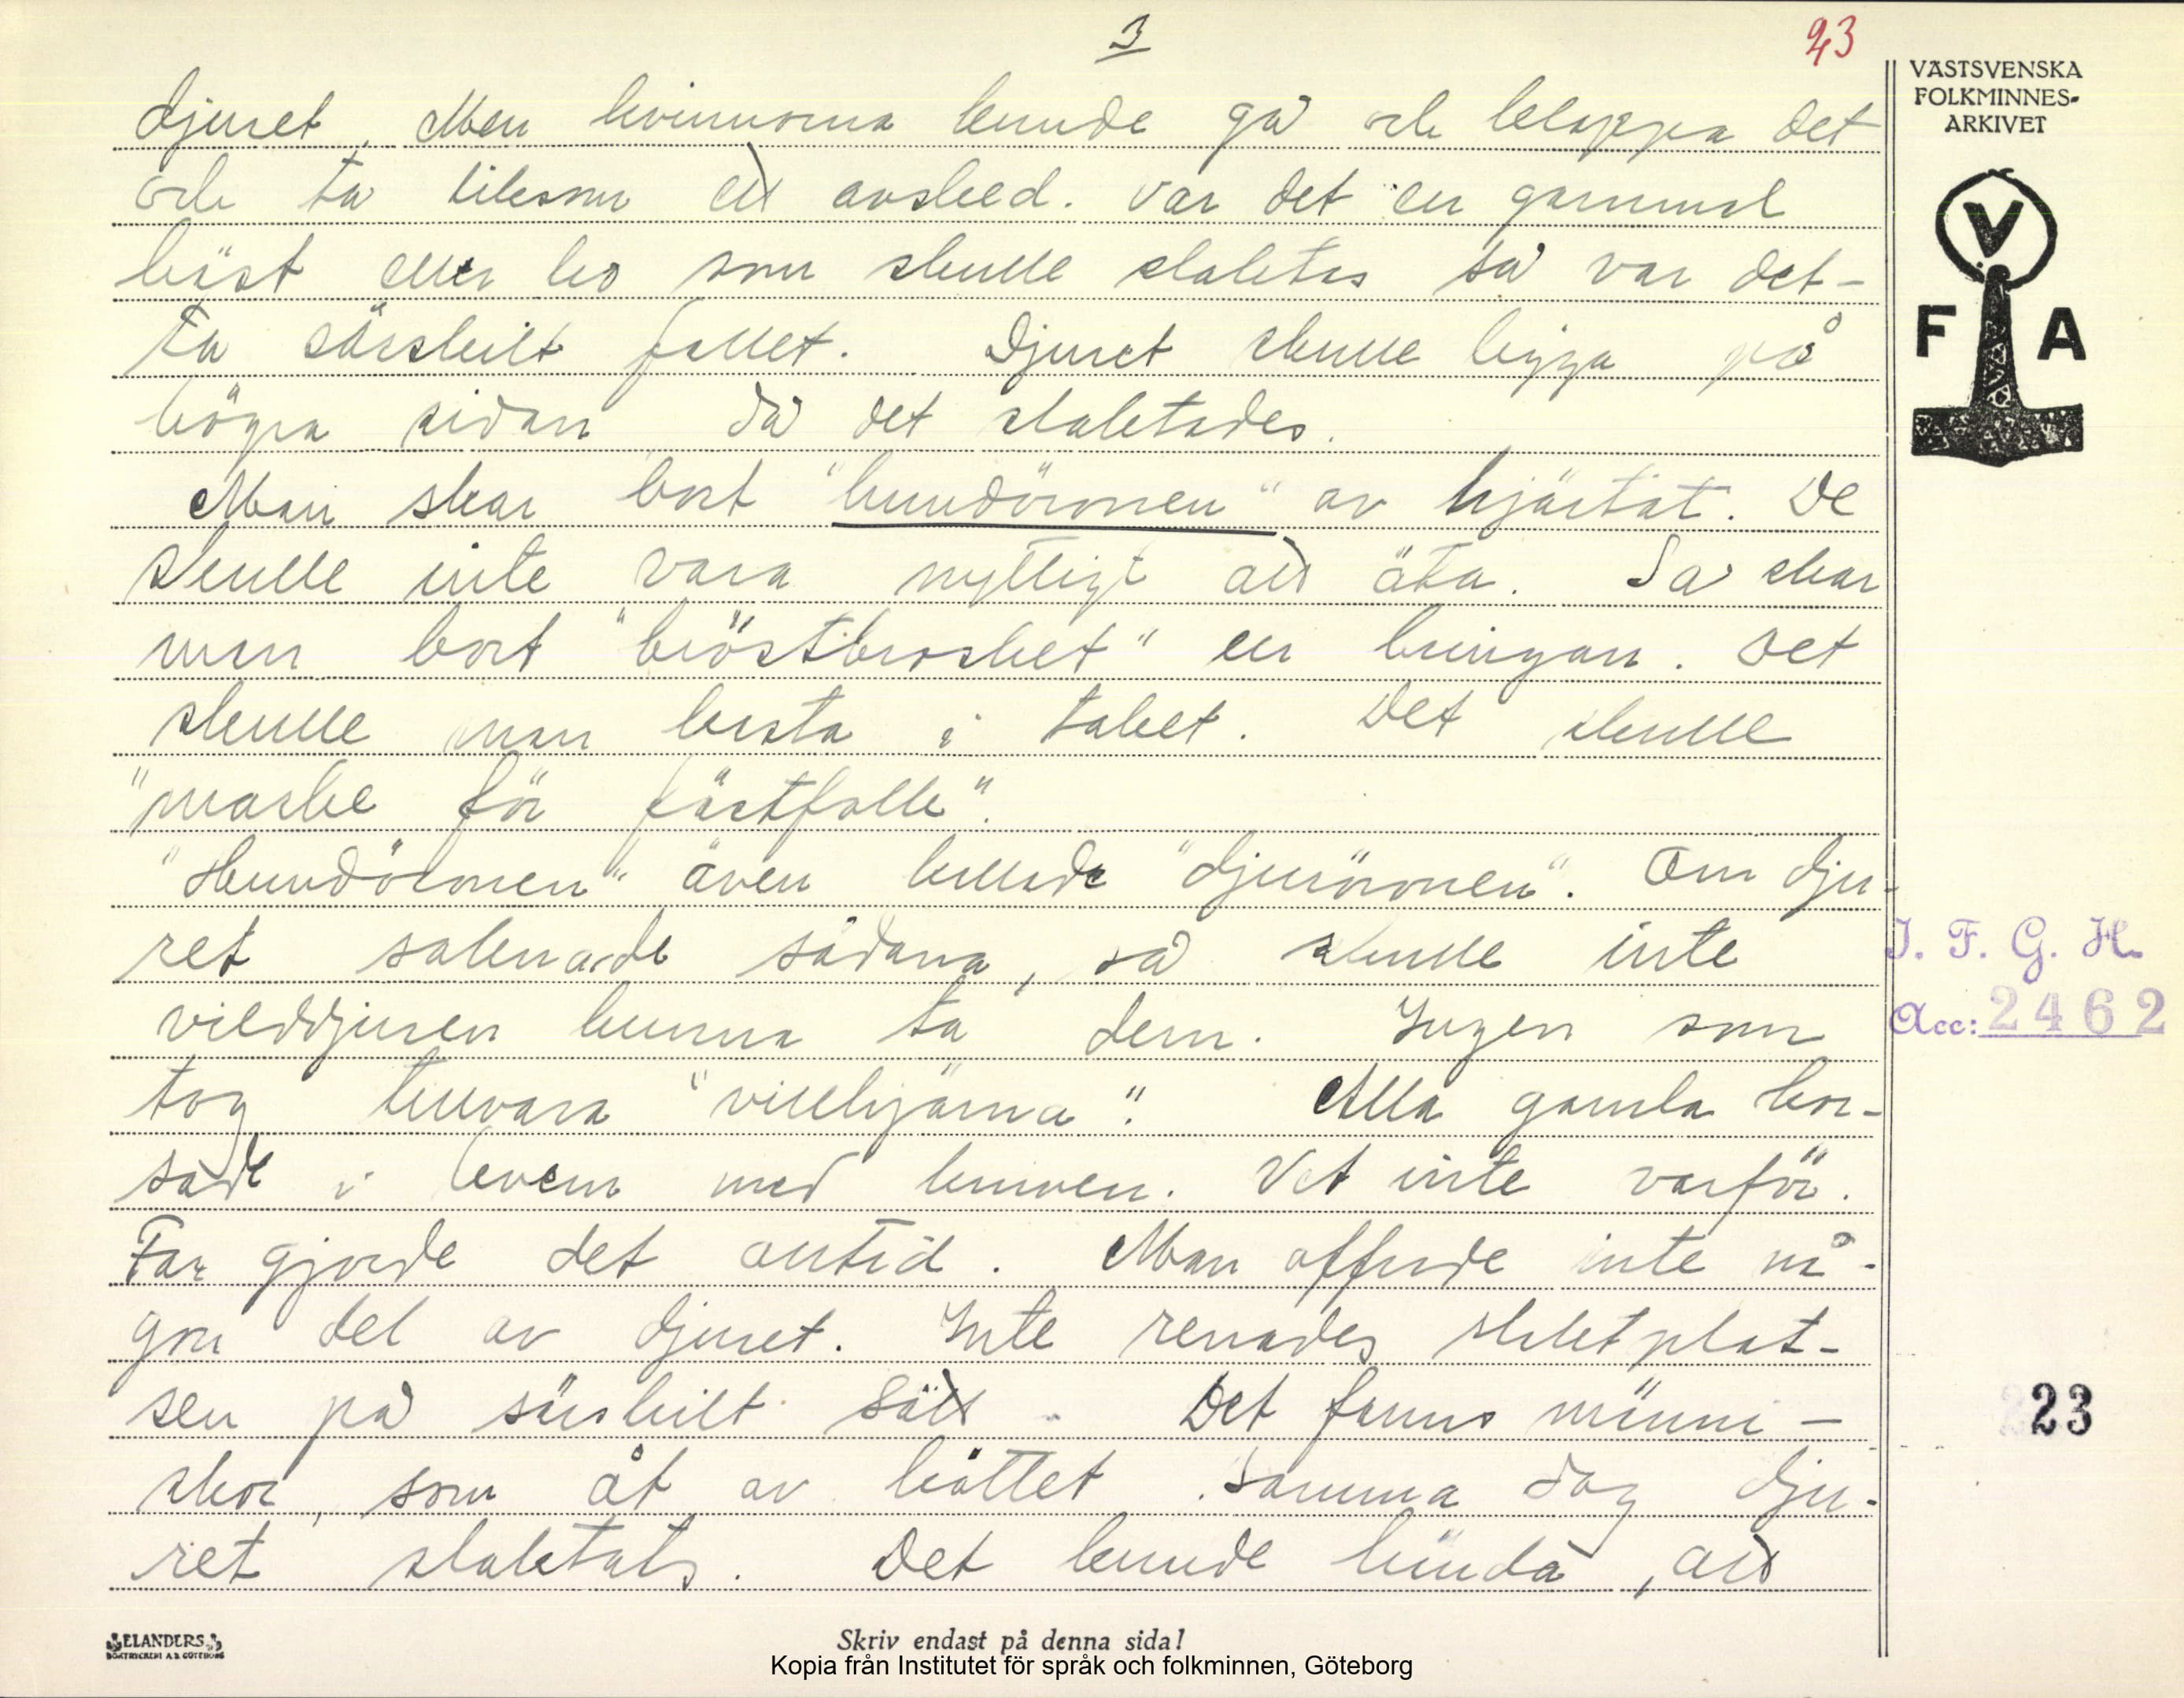 3
23
VÄSTSVENSKA
FOLKMINNES-
ARKIVET
V
F A
djuret. Men kvinnorna kunde gå och klappa det
och ta liksom ett avsked. Var det en gammal
häst eller ko som skulle slaktas så var det-
ta särskilt fallet. Djuret skulle ligga på
högra sidan då det slaktades.
Man skar bort "hundöronen" av hjärtat. De
skulle inte vara nyttigt att äta. Så skar
man bort "bröstbrosket" ur bringan. Det
skulle man kasta i taket. Det skulle
"maske för fästfolk".
"Hundöronen" även kallade "djuröronen". Om dju-
ret saknade sådana, så skulle inte
vilddjuren kunna ta dem. Ingen som
tog tillvara "villhjärna". Alla gamla kor-
sade i levern med kniven. Vet inte varför.
Far gjorde det alltid. Man offrade inte nå-
gon del av djuret. Inte renades slaktplat-
sen på särskilt sätt. Det fanns männi-
skor, som åt av köttet samma dag dju-
ret slaktats. Det kunde hända, att
I. F. G. H.
Acc: 2462
23
ELANDERS
BOKTRYCKERI A.B. GÖTEBORG
Skriv endast på denna sida!
Kopia från Institutet för språk och folkminnen, Göteborg